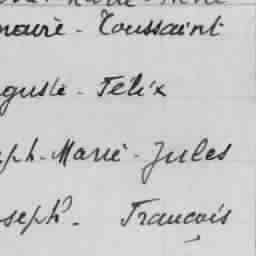 Toussaint
guste - Félix
eph - Marie - Jules
seph - François